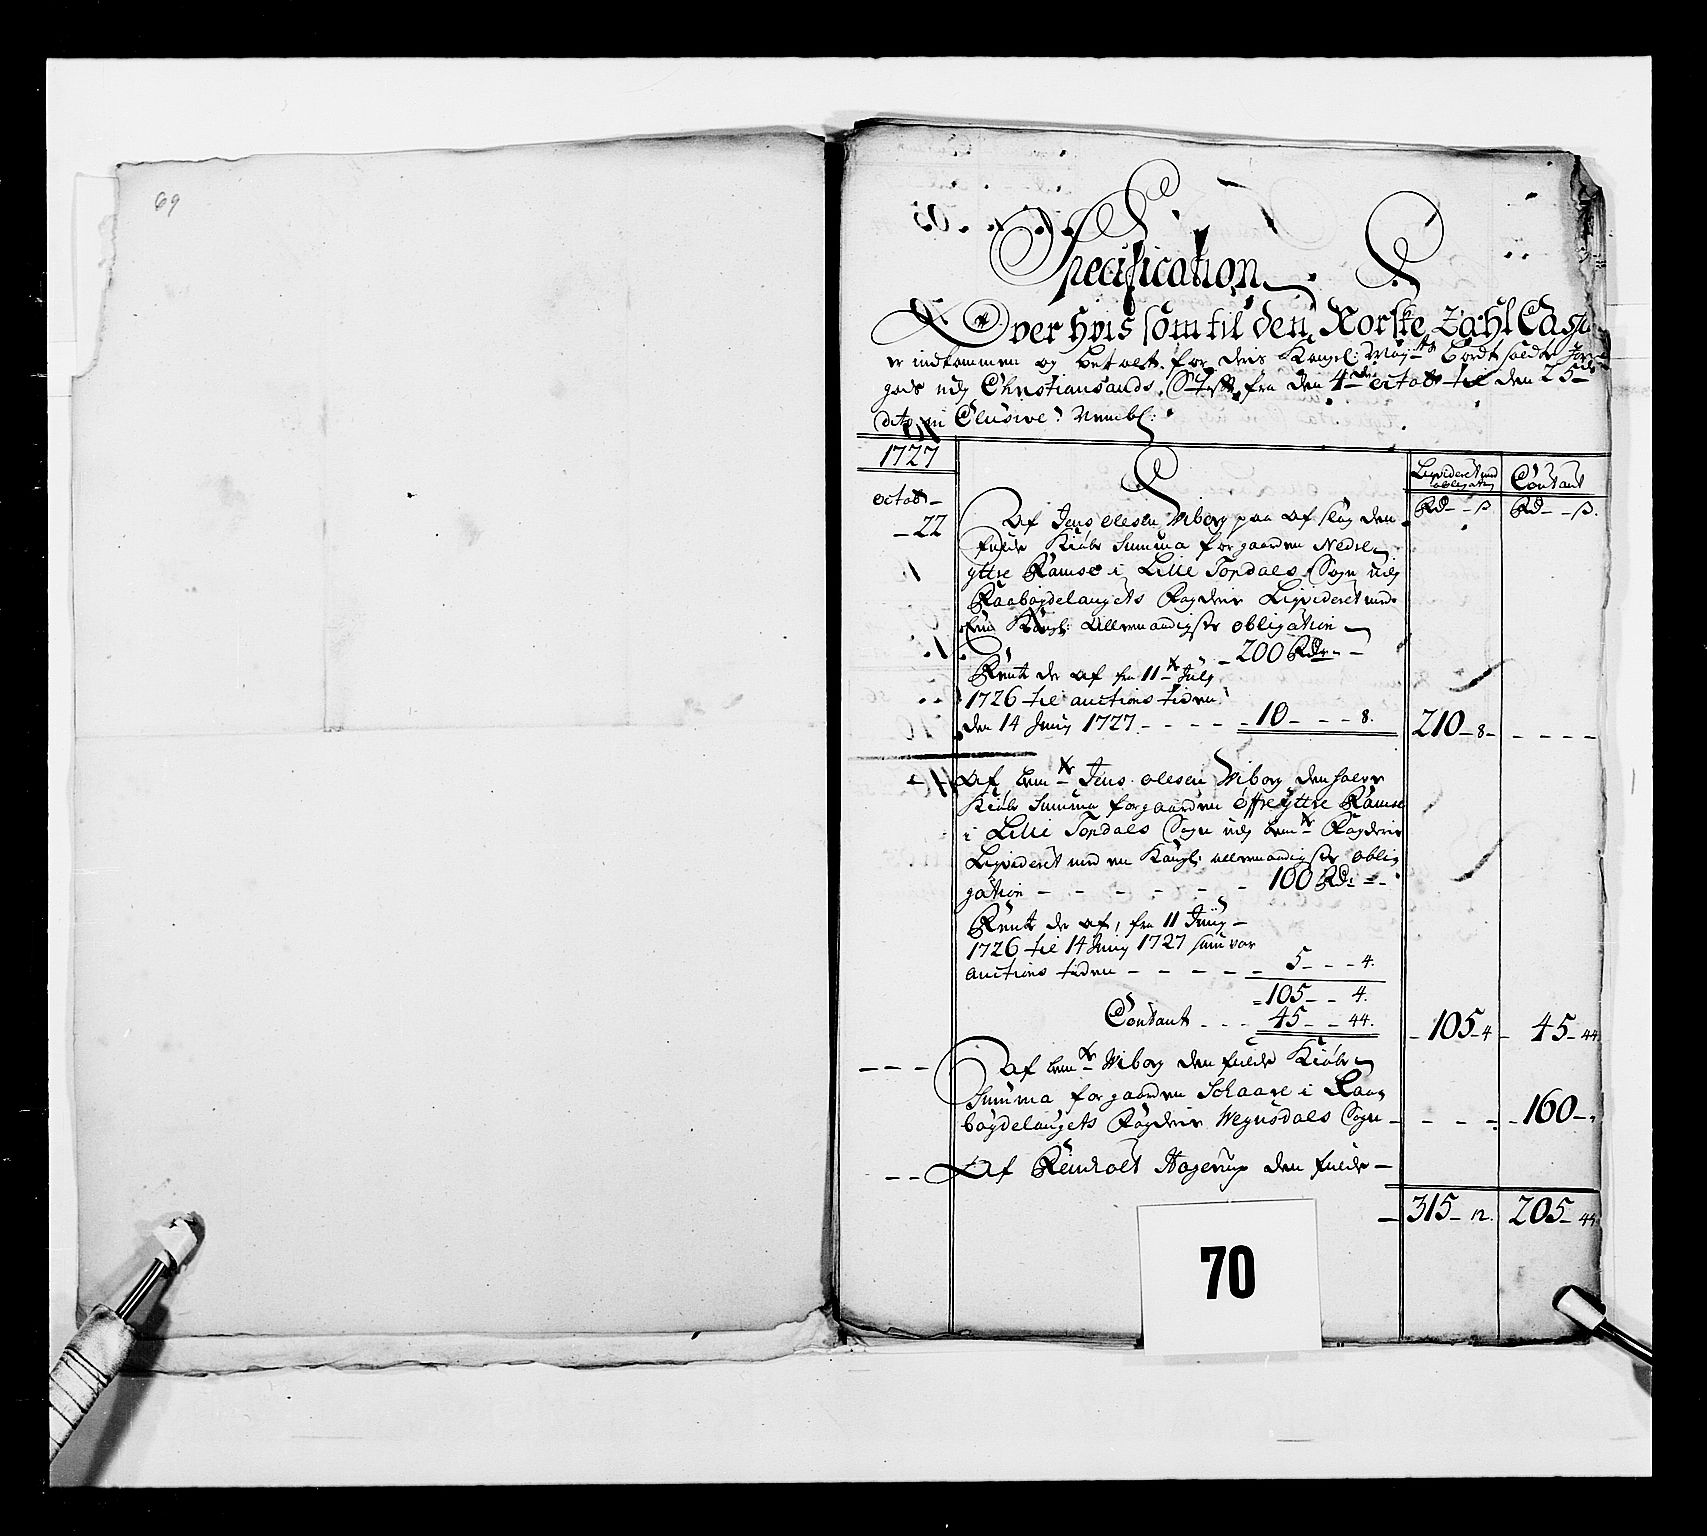 69
Specification
Over hvis som til den Norske Zahl Cassa
er indkommen og betalt for deris Kongl: May:ts bortsoldte Jorde
gods udj Christiansands Stift fra den 4de octobr til den 25de
dito inClusive Nembl:
1727
Liqvideret med obligation
Contant
Rd - - ß
Rd - - ß.
octobr -
- 22
Af Jens olesen Wiborg paa afslag den
fulde Kiøbe Summa for gaarden Nedre
yttre Ramse i Lille Topdals Sogn udj
Raabøgdelaugets Fogderie Liqvideret med
een Kongl: Allernaadigste obligation
- 200 Rdr - -
Rente der af fra 11te July
1726 til auctions tiden
den 14 Juny 1727 - - - - - 10 - - - 8.
210 - 8 - - - - -
Af bemte Jens olesen Wiborg den halve
Kiøbe Summa for gaarden øffre yttre Ramse
i Lille Topdals Sogn udj bemte Fogderie
Liqvideret med en Kongl: allernaadigste oblig
gation - - - - - - 100 Rdr - -
Rente der af, fra 11 Juny -
1726 til 14 Juny 1727 som var
auctions tiden - - - - - 5 - - - 4.
- 105 - - 4.
Contant - - - 45 - - 44.
- 105 - 4 - 45 - 44
- - - Af bemte Wiborg den fulde Kiøbe
Summa for gaarden Schaare i Raa
bøgdelaugets Fogderie Wegusdals Sogn - - - - - 160 - -
- - Af Reinholt Hagerup den fulde -
- 315 - 12. 205 - 44
70